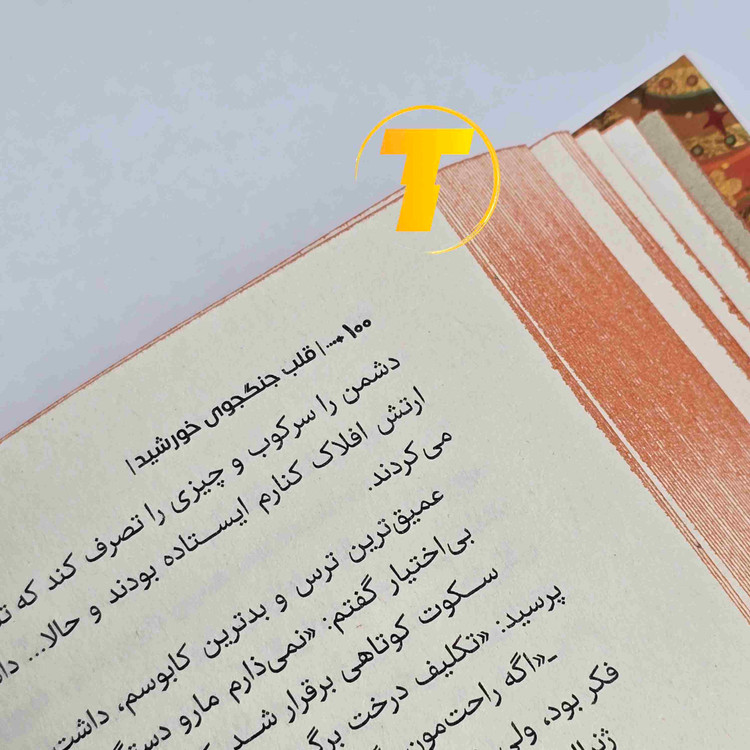 T
۱۰۰ | قلب جنگجوی خورشید |
دشمن را سرکوب و چیزی را تصرف کند که
ارتش افلاک کنارم ایستاده بودند و حالا...
می‌کردند.
عمیق‌ترین ترس و بدترین کابوسم، داشت
بی‌اختیار گفتم: «نمی‌ذارم مارو
سکوت کوتاهی برقرار شد.
پرسید: «تکلیف درخت
ـ«اگه راحت‌مون
فکر بود، ولی